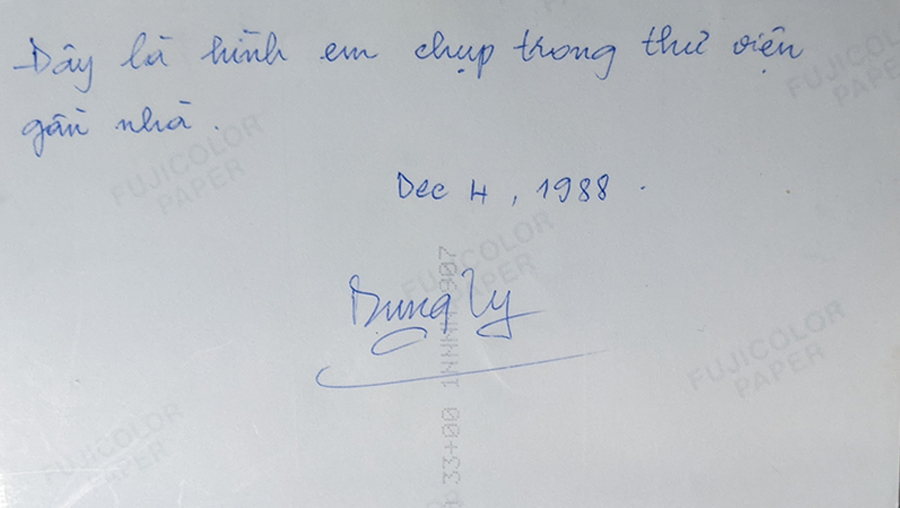 Đây là hình em chụp trong thư viện
gần nhà.
Dec 4, 1988.
Dung Ly
FUJICOLOR
PAPER
FUJICOLOR
PAPER
FUJICOLOR
PAPER
FUJICOLOR
PAPER
FUJICOLOR
PAPER